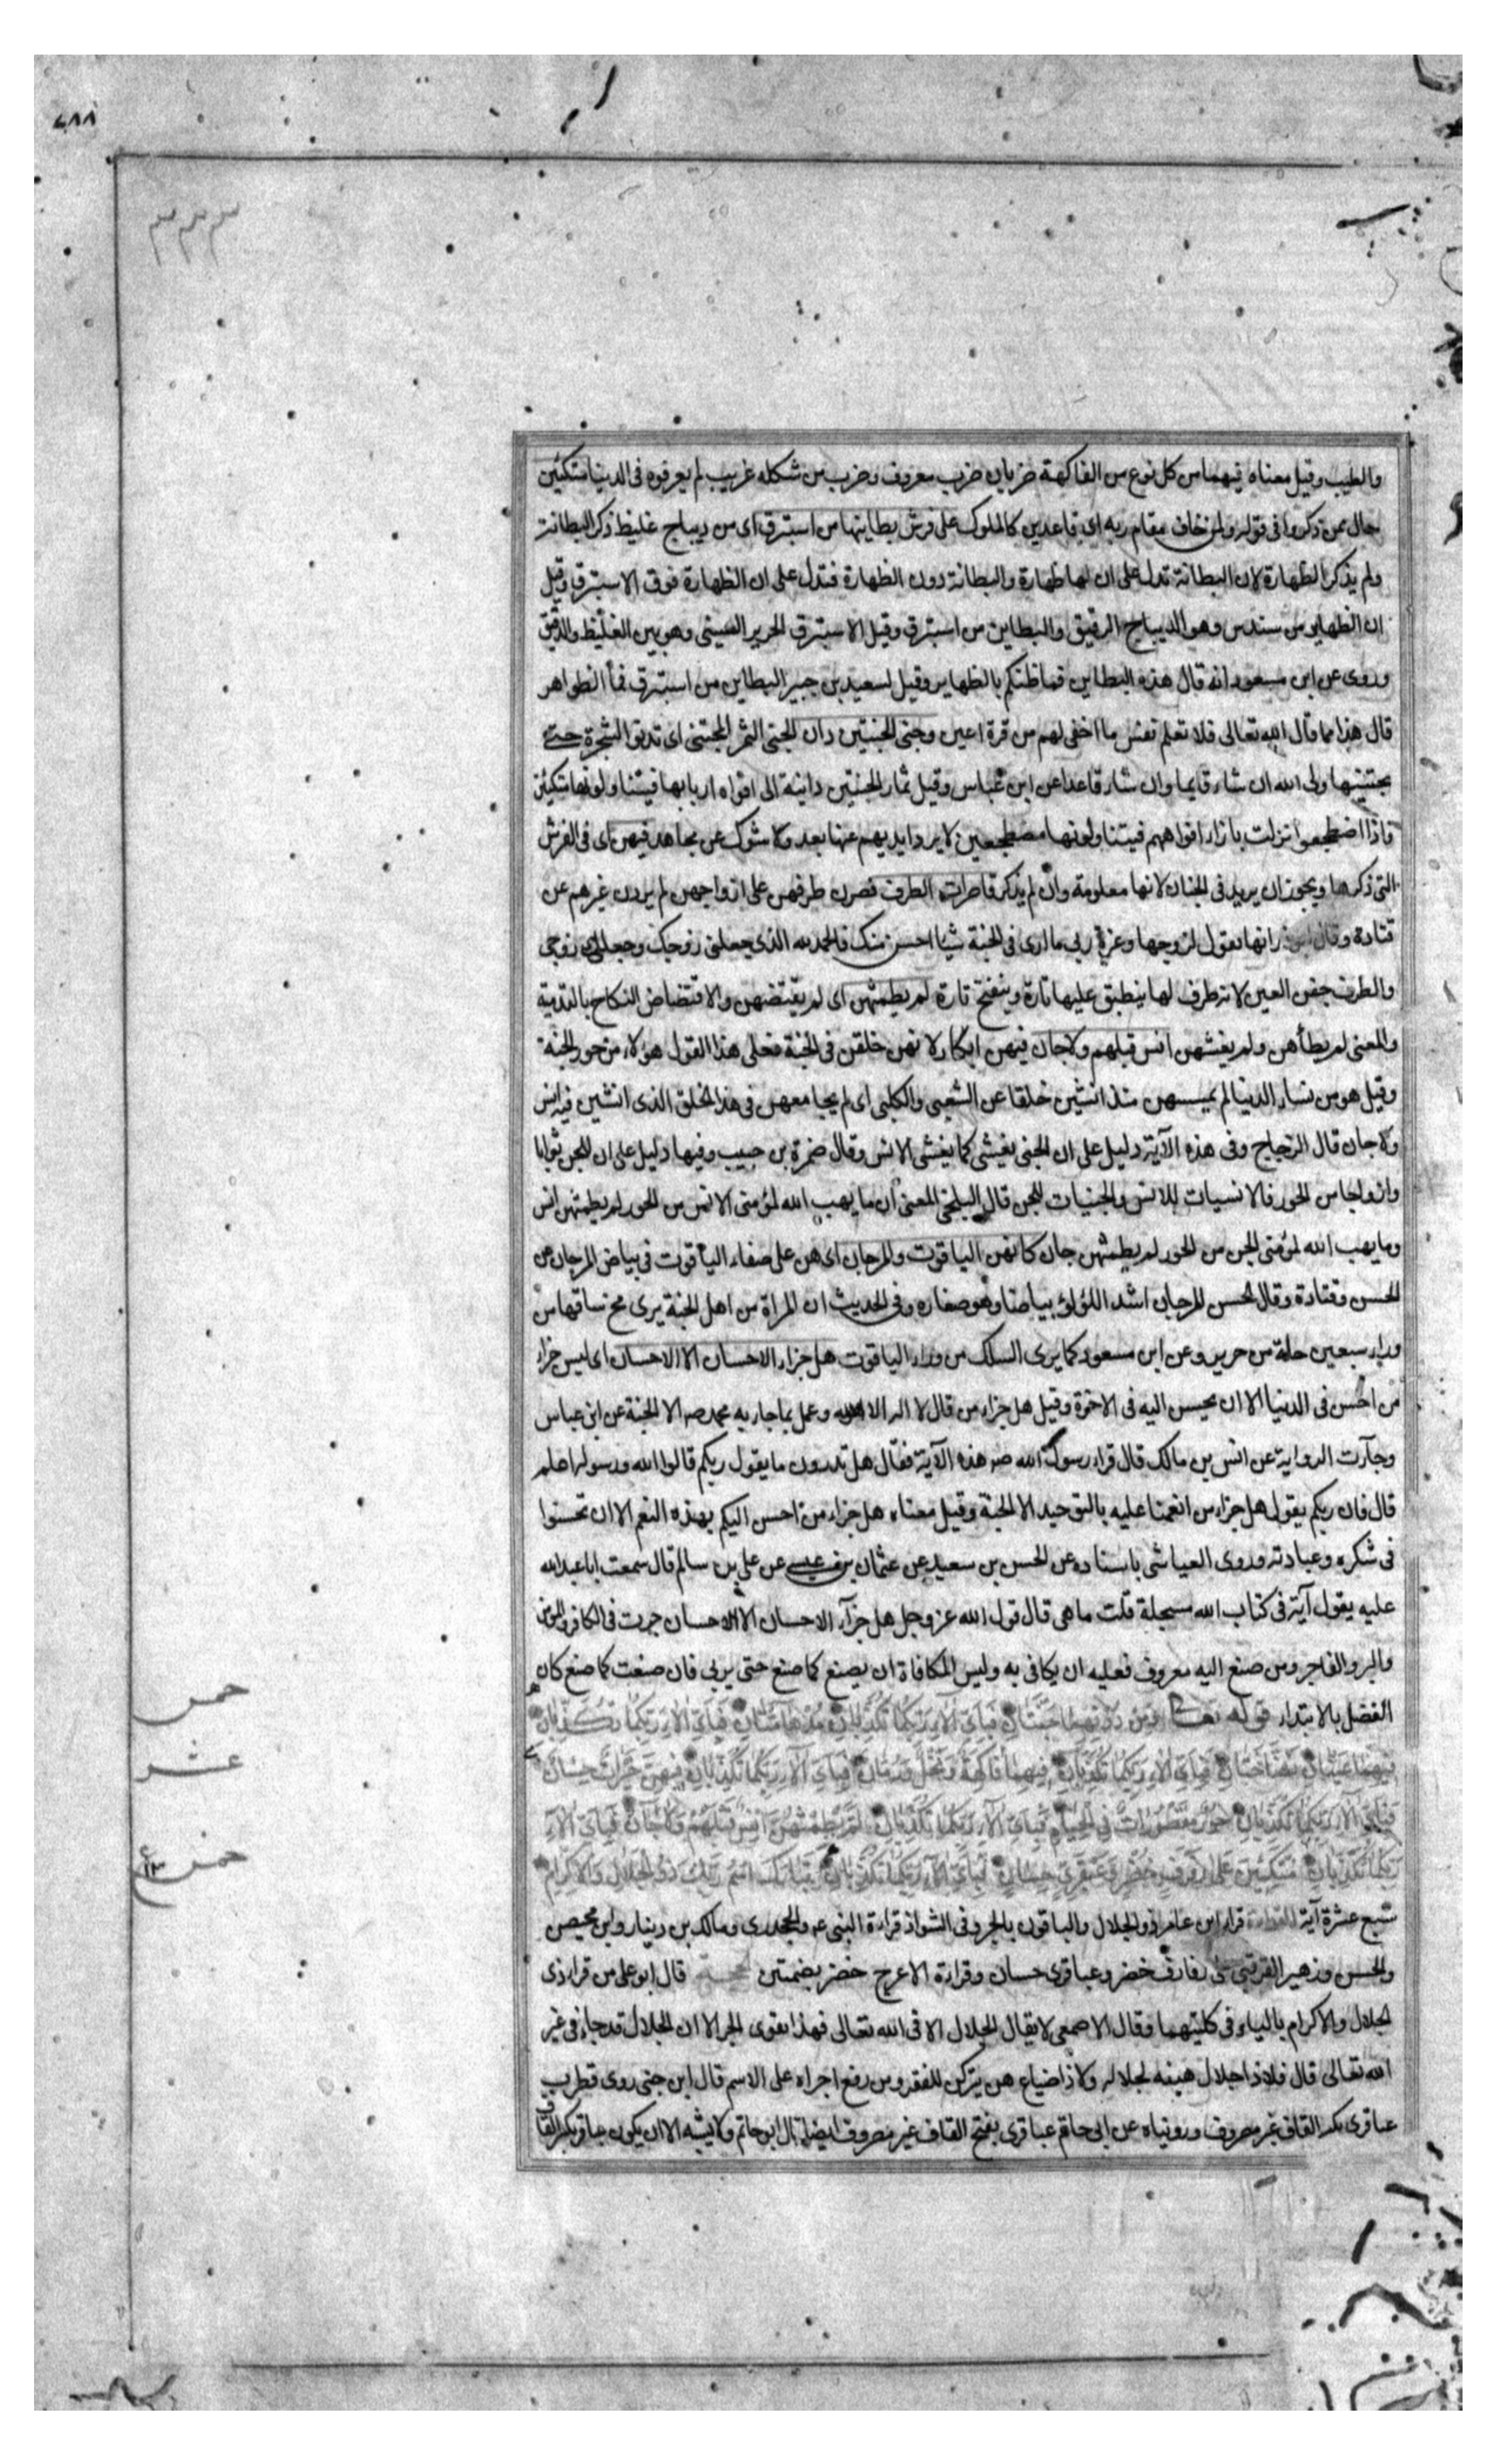 ٤٨٨
٣٣٣
والطيب وقيل معناه فيهما من كل نوع من الفاكهة ضربان ضرب معروف وضرب من شكله غريب لم يعرفوه فى الدنيا متكئين
حال ممن ذكروا فى قوله ولمن خاف مقام ربه اى قاعدين كالملوك على فرش بطاينها من استبرق اى من ديباج غليظ ذكر البطانة
ولم يذكر الظهارة لان البطانة تدل على ان لها ظهارة والبطانة دون الظهارة فتدل على ان الظهارة فوق الاستبرق وقيل
ان الظهاير من سندس وهو الديباج الرقيق والبطاين من استبرق وقيل الاستبرق الحرير الصينى وهو بين الغليظ والدقيق
وروى عن ابن مسعود انه قال هذه البطاين فما ظنكم بالظهاير وقيل لسعيد بن جبير البطاين من استبرق فما الظواهر
قال هذا مما قال الله تعالى فلا تعلم نفس ما اخفى لهم من قرة اعين وجنى الجنتين دان الجنى الثمر المجتنى اى تدنوا الشجرة حتى
يجتنيها ولى الله ان شاء قايما وان شاء قاعدا عن ابن عباس وقيل ثمار الجنتين دانية الى افواه اربابها فيتناولونها متكئين
فاذا اضطجعوا نزلت بازاء افواههم فيتناولونها مضطجعين لا يرد ايديهم عنها بعد ولا شوك عن مجاهد فيهن اى فى الفرش
التى ذكرها ويجوز ان يريد فى الجنان لانها معلومة وان لم يذكر قاصرات الطرف قصرن طرفهن على ازواجهن لم يردن غيرهم عن
قتادة وقال ابوذر انها تقول لزوجها وعزة ربى ما ارى فى الجنة شيا احسن منك فالحمد لله الذى جعلنى زوجك وجعلك زوجى
والطرف جفن العين لانه طرف لها ينطبق عليها تارة وينفتح تارة لم يطمثهن اى لم يقتضهن والاقتضاض النكاح بالتدمية
والمعنى لم يطأهن ولم يغشهن انس قبلهم ولا جان فهن ابكار لانهن خلقن فى الجنة فعلى هذا القول هؤلاء من حور الجنة
وقيل هو من نساء الدنيا لم يمسسهن منذ انشين خلقا عن الشعبى والكلبى اى لم يجامعهن فى هذا الخلق الذى انشين فيه انس
ولا جان قال الزجاج وفى هذه الآية دليل على ان الجنى يغشى كما يغشى الانس وقال ضمرة بن حبيب وفيها دليل على ان للجن ثوابا
وازواجا من الحور فالانسيات للانس والجنيات للجن قال البلخى المعنى ان ما يهب الله لمؤمنى الانس من الحور لم يطمثهن انس
وما يهب الله لمؤمنى الجن من الحور لم يطمثهن جان كانهن الياقوت والمرجان اى هن على صفاء الياقوت فى بياض المرجان عن
الحسن وقتادة وقال الحسن المرجان اشد اللؤلؤ بياضا وهو صغاره وفى الحديث ان المراة من اهل الجنة يرى مخ ساقها من
وراء سبعين حلة من حرير وعن ابن مسعود كما يرى السلك من وراء الياقوت هل جزاء الاحسان الا الاحسان اى ليس جزاء
من احسن فى الدنيا الا ان يحسن اليه فى الاخرة وقيل هل جزاء من قال لا اله الا الله وعمل بما جاء به محمد صـ الا الجنة عن ابن عباس
وجآءت الرواية عن انس بن مالك قال قراء رسول الله صـ هذه الآية فقال هل تدرون ما يقول ربكم قالوا الله ورسوله اعلم
قال فان ربكم يقول هل جزاء من انعمنا عليه بالتوحيد الا الجنة وقيل معناه هل جزاء من احسن اليكم بهذه النعم الا ان تحسنوا
فى شكره وعبادته وروى العياشى باسناده عن الحسن بن سعيد عن عثمان بن عيسى عن على بن سالم قال سمعت ابا عبد الله
عليه يقول آية فى كتاب الله مسجلة قلت ما هى قال قول الله عز وجل هل جزآء الاحسان الا الاحسان جرت فى الكافر والمؤمن
والبر والفاجر ومن صنع اليه معروف فعليه ان يكافى به وليس المكافاة ان يصنع كما صنع حتى يربى فان صنعت كما صنع كان
الفضل بالابتداء قوله تعالى وَمِن دُونِهِمَا جَنَّتَانِ فَبِاَىِّ الآءِ رَبِّكُمَا تُكَذِّبَانِ مُدْهَامَّتَانِ فَبِاَىِّ الآءِ رَبِّكُمَا تُكَذِّبَانِ
فِيهِمَا عَيْنَانِ نَضَّاخَتَانِ فَبِاَىِّ الآءِ رَبِّكُمَا تُكَذِّبَانِ فِيهِمَا فَاكِهَةٌ وَنَخْلٌ وَرُمَّانٌ فَبِاَىِّ الآءِ رَبِّكُمَا تُكَذِّبَانِ فِيهِنَّ خَيْرَاتٌ حِسَانٌ
فَبِاَىِّ الآءِ رَبِّكُمَا تُكَذِّبَانِ حُورٌ مَقْصُورَاتٌ فِى الْخِيَامِ فَبِاَىِّ الآءِ رَبِّكُمَا تُكَذِّبَانِ لَمْ يَطْمِثْهُنَّ اِنْسٌ قَبْلَهُمْ وَلَا جَانٌّ فَبِاَىِّ الآءِ
رَبِّكُمَا تُكَذِّبَانِ مُتَّكِئِينَ عَلَى رَفْرَفٍ خُضْرٍ وَعَبْقَرِىٍّ حِسَانٍ فَبِاَىِّ الآءِ رَبِّكُمَا تُكَذِّبَانِ تَبَارَكَ اسْمُ رَبِّكَ ذِى الْجَلَالِ وَالْاِكْرَامِ
سبع عشرة آية القراءة قراء ابن عامر ذو الجلال والباقون بالجر وفى الشواذ قراءة النبى عـ والجحدرى ومالك بن دينار وابن محيصن
والحسن وزهير القرقبى على رفارف خضر وعباقرى حسان وقراءة الاعرج خضر بضمتين الحجة قال ابو على من قراء ذى
الجلال والاكرام بالياء فى كليتهما وقال الاصمعى لا يقال الجلال الا فى الله تعالى فهذا يقوى الجر الا ان الجلال قد جاء فى غير
الله تعالى قال فلا ذا جلال هبنه لجلاله ولا ذا ضياع هن يتركن للفقر ومن رفع اجراه على الاسم قال ابن جنى روى قطرب
عباقرى بكسر القاف غير مصروف وروئياه عن ابى حاتم عباقرى بفتح القاف غير مصروف ايضا قال ابو حاتم ولا يشبه الا ان يكون عباقر بكسر القاف
خمس
عشر
خمس